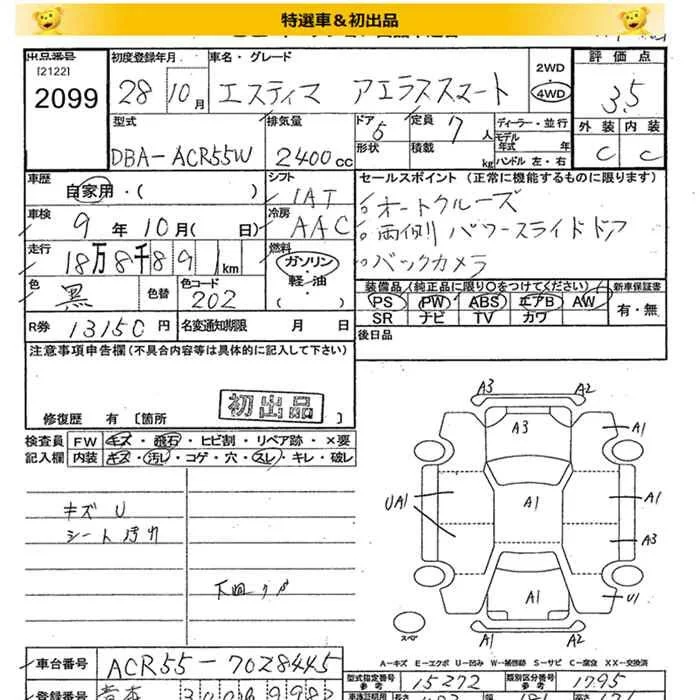 特選車＆初出品
出品番号 初度登録年月 車名・グレード 2WD 評価点
[2122]
2099 28 10月 エスティマ アエラススマート 4WD 3.5
型式 排気量 ドア 5 定員 7人 ディーラー・並行 外装 内装
DBA-ACR55W 2400cc 形状 積載 kg モデル年式 年 C C
ハンドル 左・右
車歴 シフト セールスポイント（正常に機能するものに限ります）
自家用・（ ） IAT オートクルーズ
車検 9年10月（ 日） 冷房 AAC 両側パワースライドドア
走行 18万8千891km 燃料 ガソリン・軽・油 バックカメラ
色 黒 色替 色コード 202 装備品（純正品に限り○をつけてください） 新車保証書
PS PW ABS エアB AW 有・無
SR ナビ TV カワ
R券 13150円 名変通知期限 月 日 後日品
注意事項申告欄（不具合内容等は具体的に記入して下さい）
初出品
修復歴 有 [箇所 ]
検査員 FW キズ・飛石・ヒビ割・リペア跡・×要
記入欄 内装 キズ・汚れ・コゲ・穴・スレ・キレ・破レ
キズ U
シート汚れ
A3 A2
A3 A1
UA1 A1 A1
A3
A1 U1
スペア A1 A2
A－キズ E－エクボ U－凹み W－補修跡 S－サビ C－腐食 XX－交換済
車台番号 ACR55-7028445
型式指定番号 参考 15272 類別区分番号 参考 1795
登録番号